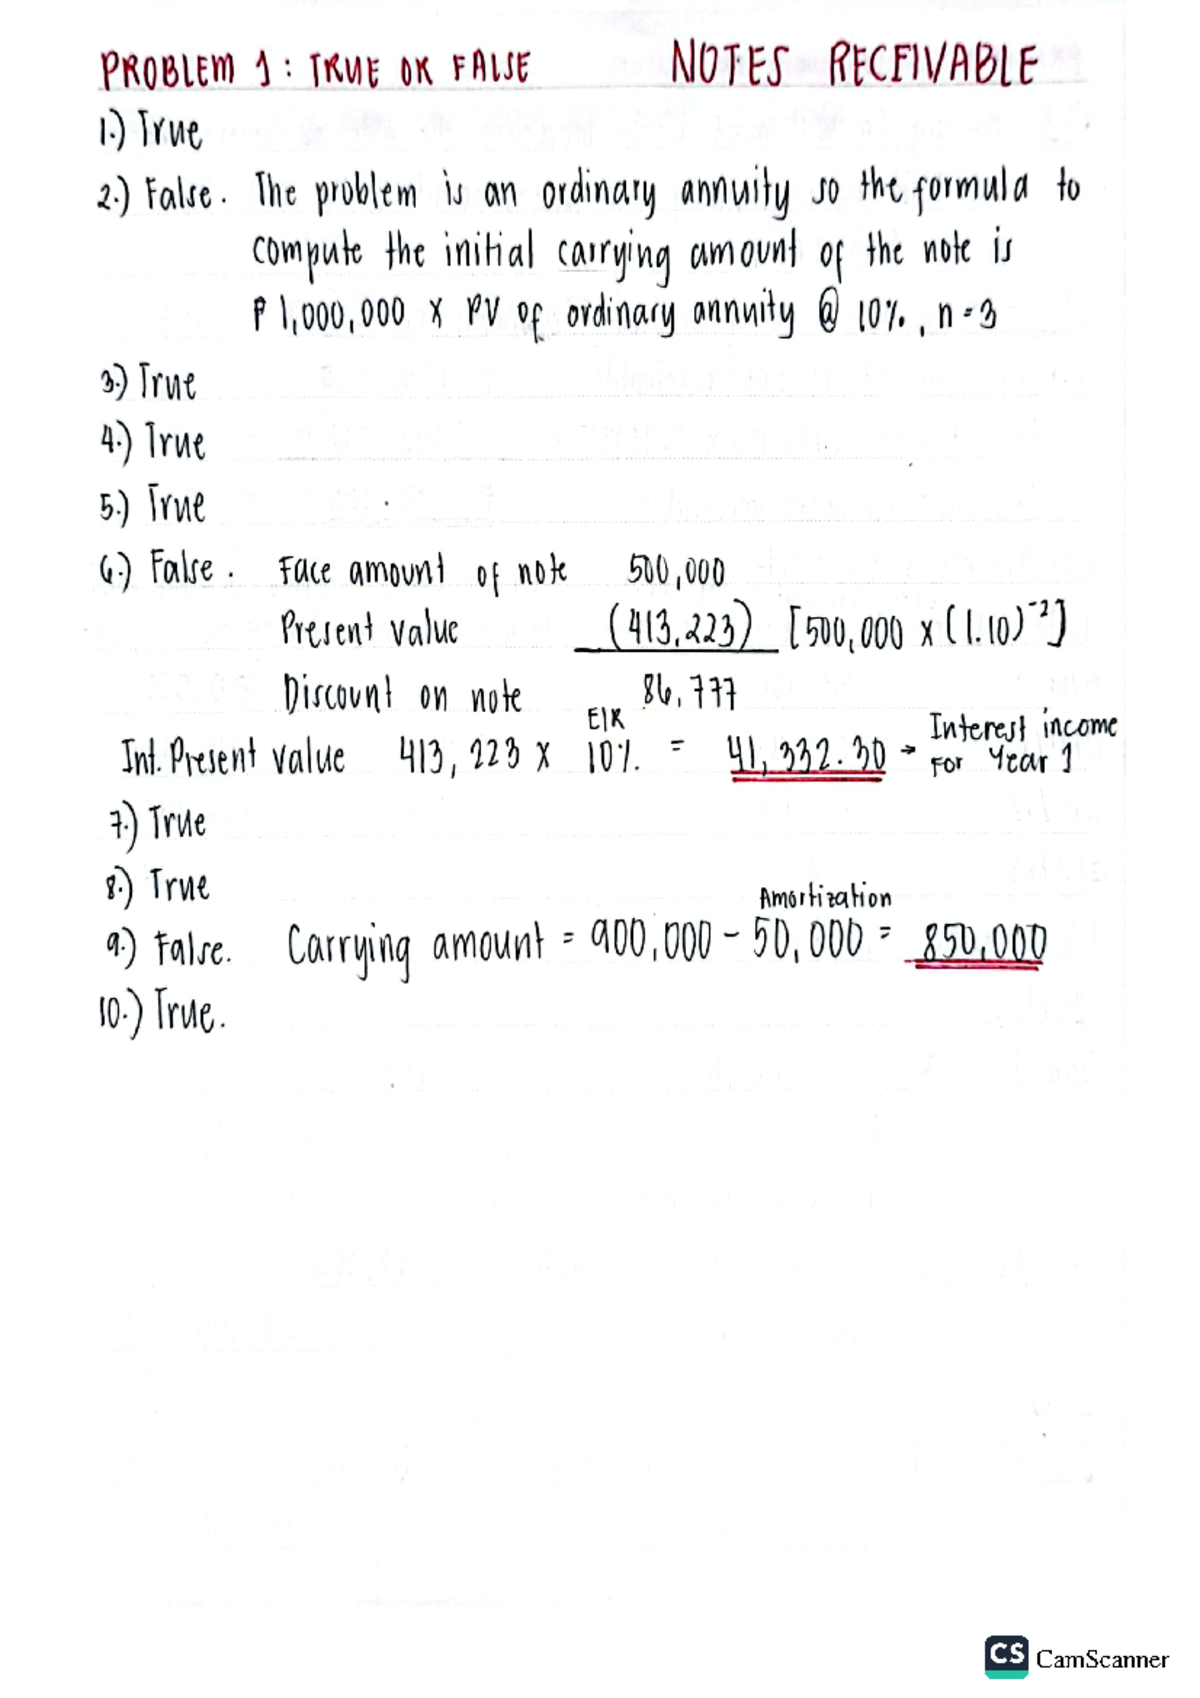 PROBLEM 1 : TRUE OR FALSE NOTES RECEIVABLE
1.) True
2.) False. The problem is an ordinary annuity so the formula to
compute the initial carrying amount of the note is
₱ 1,000,000 x PV of ordinary annuity @ 10%, n = 3
3.) True
4.) True
5.) True
6.) False. Face amount of note 500,000
Present value (413,223) [500,000 x (1.10)⁻²]
Discount on note 86,777
Int. Present value 413,223 x EIR 10% = 41,332.30 → Interest income
For Year 1
7.) True
8.) True
Amortization
9.) False. Carrying amount = 900,000 - 50,000 = 850,000
10.) True.
CS CamScanner